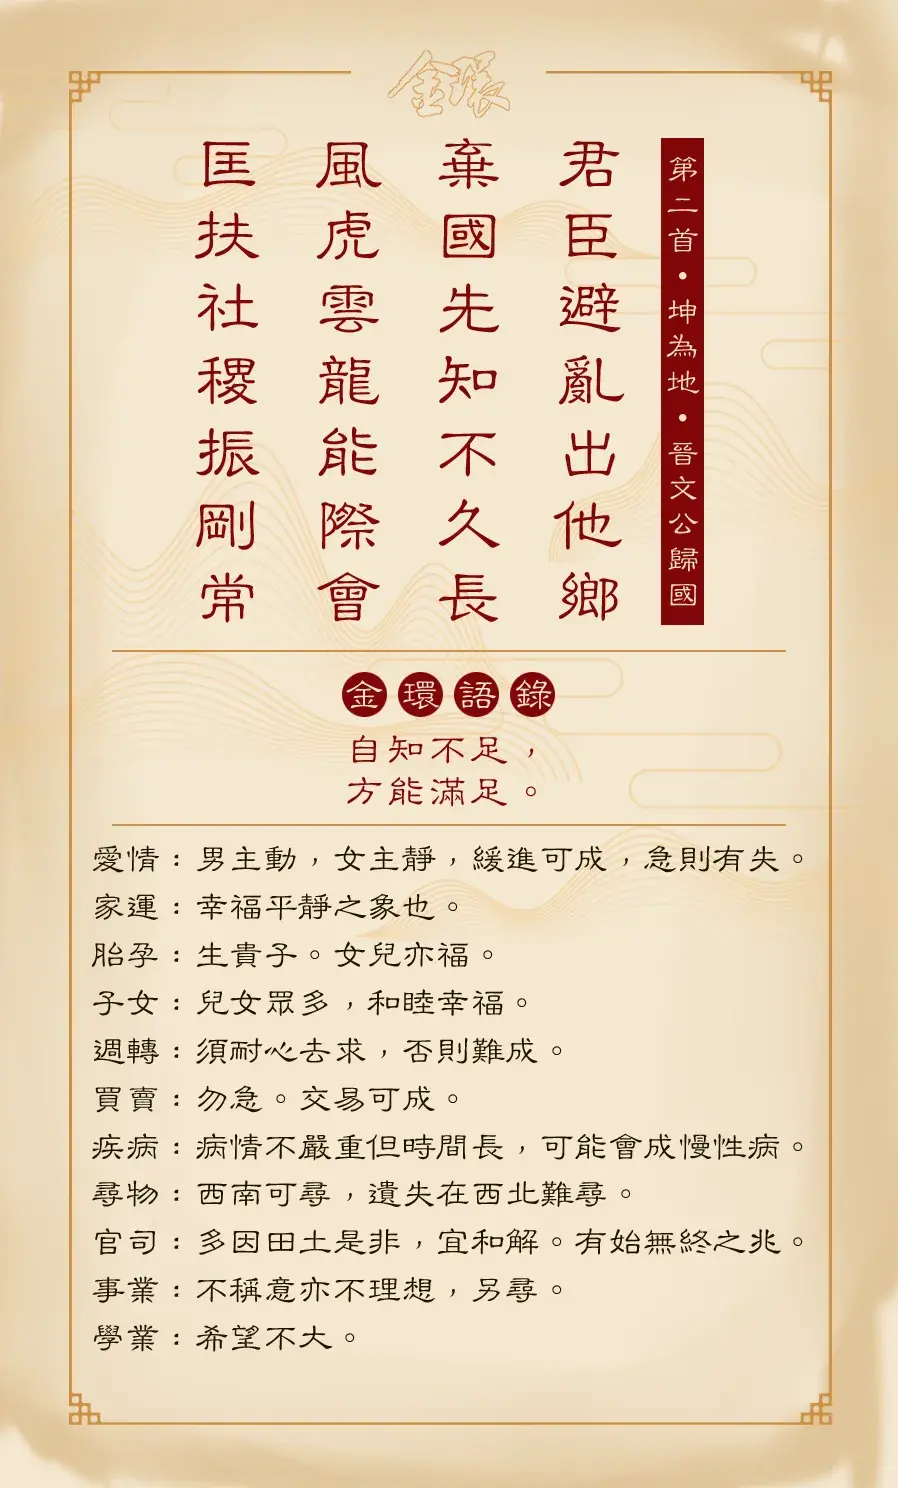 金環
第二首・坤為地・晉文公歸國
君臣避亂出他鄉
棄國先知不久長
風虎雲龍能際會
匡扶社稷振剛常
金環語錄
自知不足，
方能滿足。
愛情：男主動，女主靜，緩進可成，急則有失。
家運：幸福平靜之象也。
胎孕：生貴子。女兒亦福。
子女：兒女眾多，和睦幸福。
週轉：須耐心去求，否則難成。
買賣：勿急。交易可成。
疾病：病情不嚴重但時間長，可能會成慢性病。
尋物：西南可尋，遺失在西北難尋。
官司：多因田土是非，宜和解。有始無終之兆。
事業：不稱意亦不理想，另尋。
學業：希望不大。